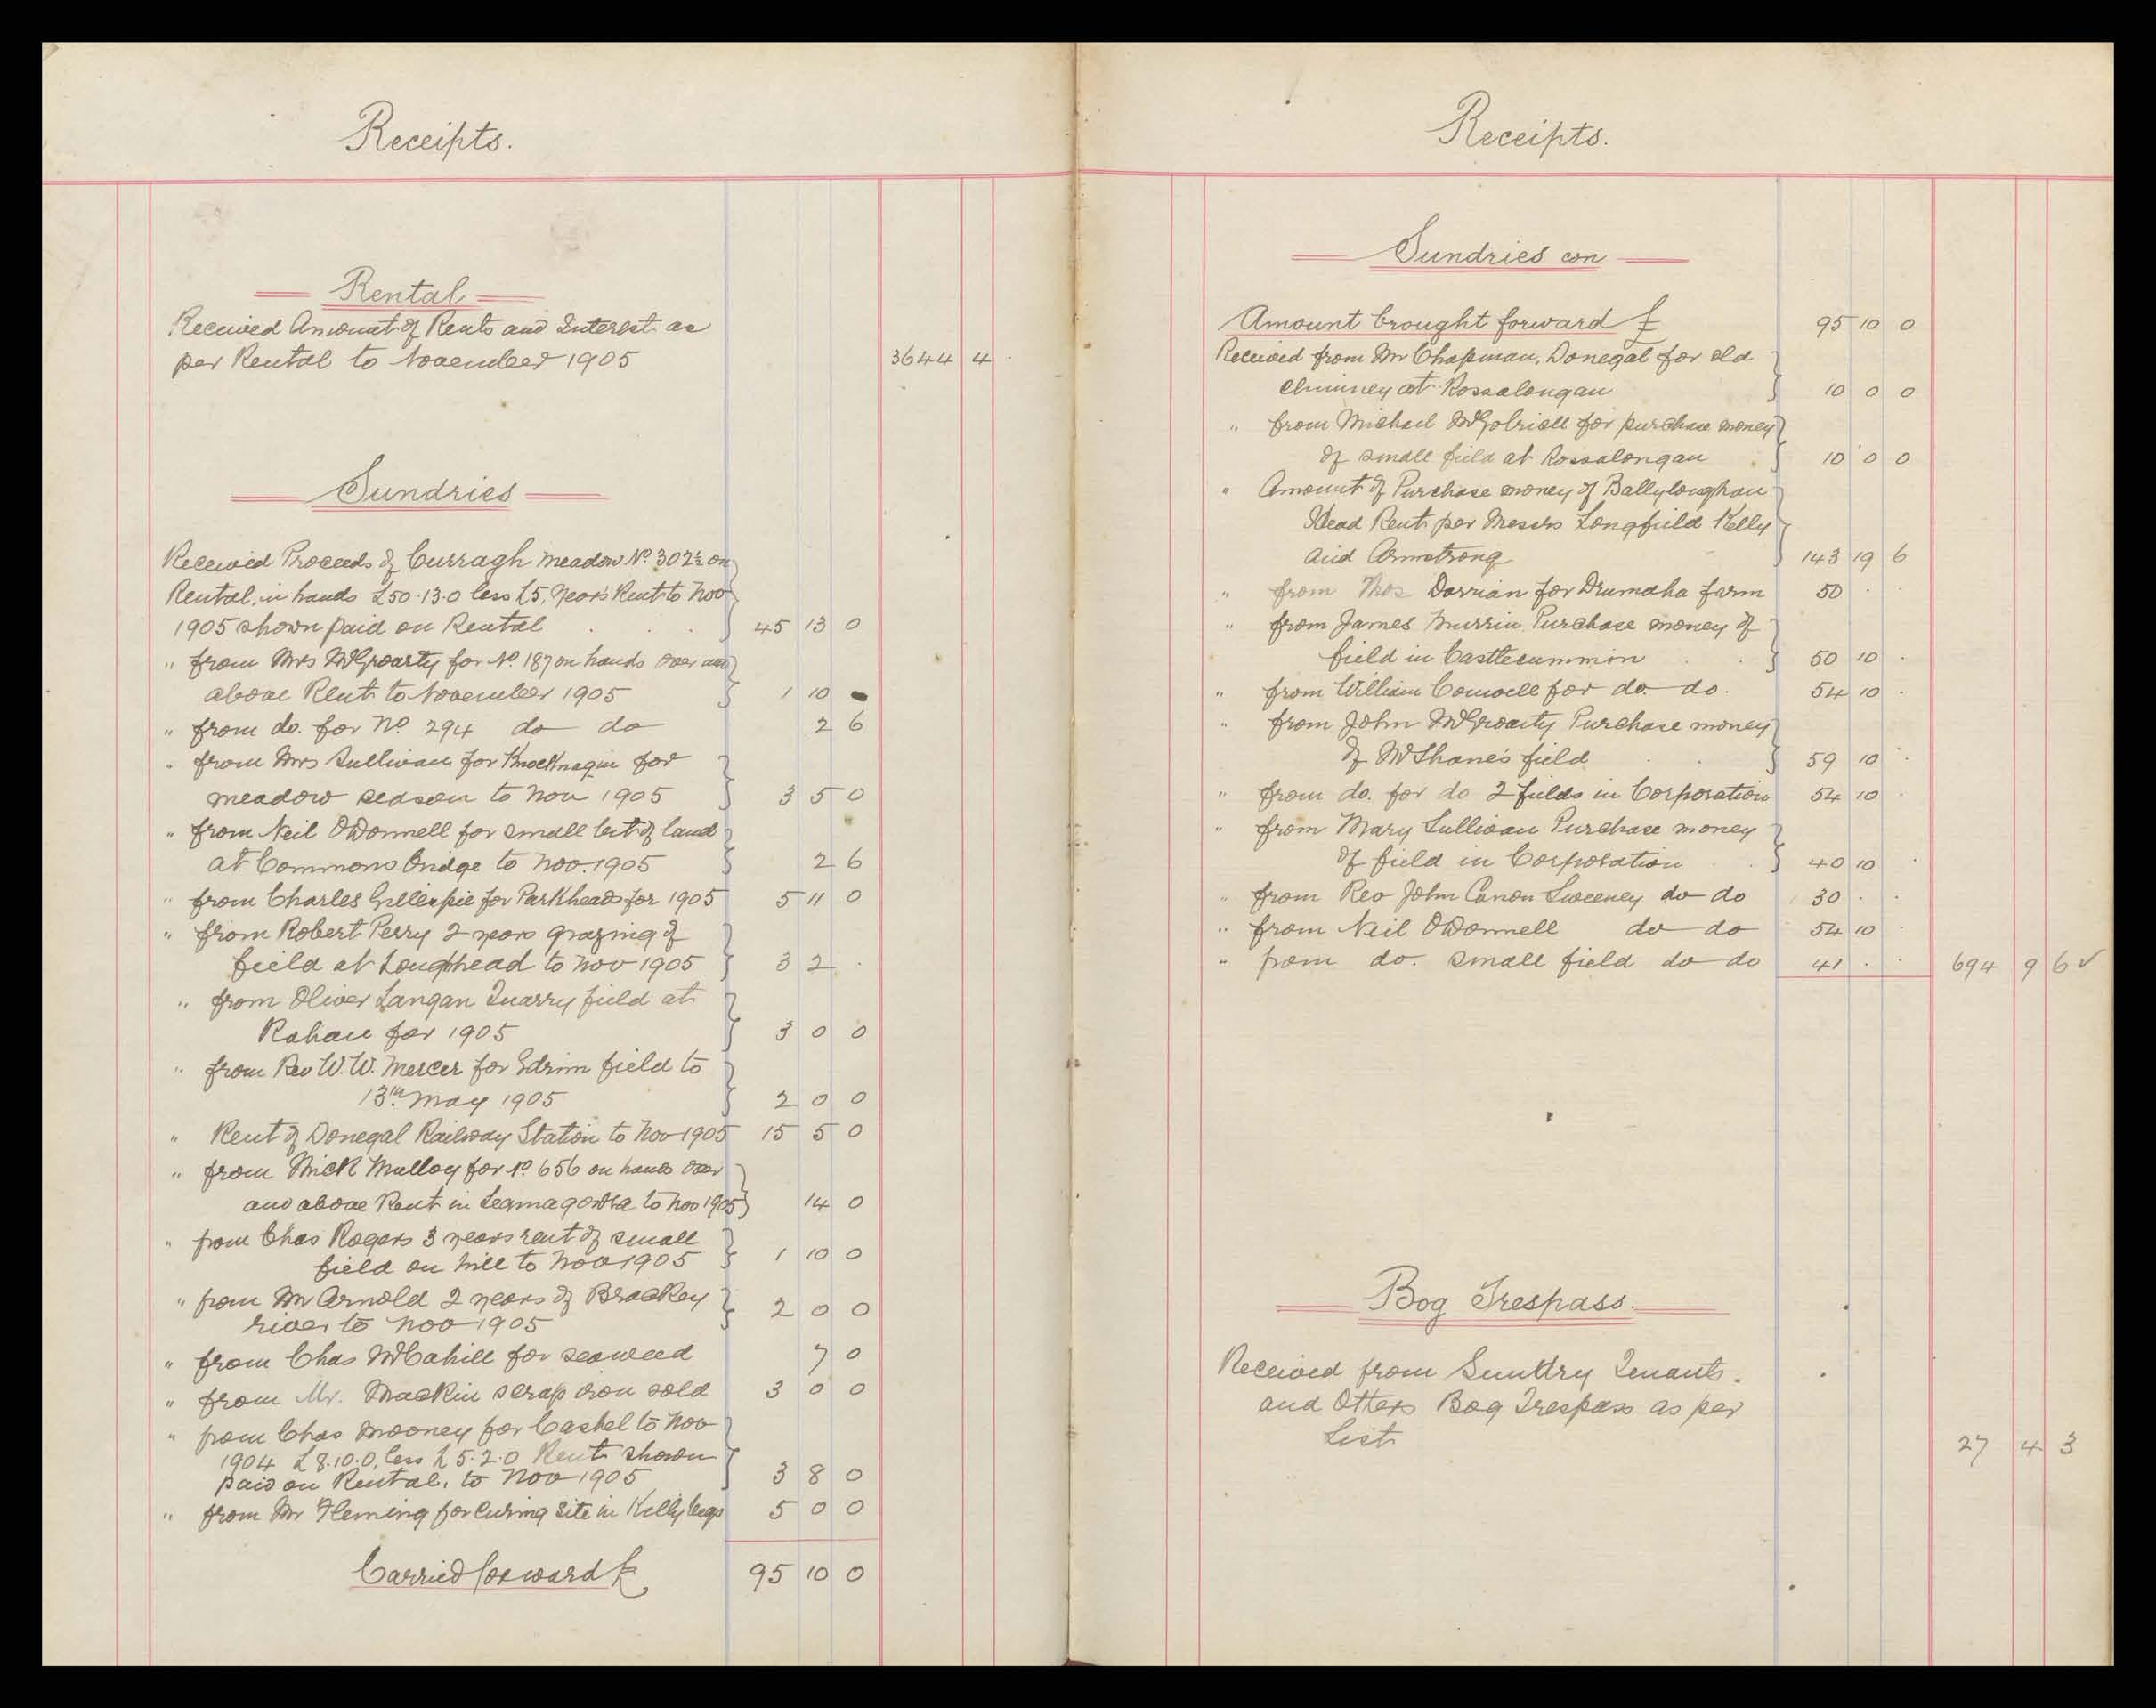 Receipts.
Rental
Received Amount of Rents and Interest as
per Rental to November 1905 3644 4 .
Sundries
Received Proceeds of Curragh meadow No. 302½ on
Rental, in hands £50.13.0 less £5, Years Rent to Nov
1905 shown paid on Rental . . . 45 13 0
" from Mrs McGroarty for No. 187 on hands over and
above Rent to November 1905 1 10 -
" from do. for No. 294 do do 2 6
" from Mrs Sullivan for Knocknagin for
meadow season to Nov 1905 3 5 0
" from Neil O'Donnell for small bit of land
at Commons Bridge to Nov. 1905 2 6
" from Charles Gillespie for Parkheads for 1905 5 11 0
" from Robert Perry 2 years grazing of
field at Loughhead to Nov 1905 3 2 .
" from Oliver Langan Quarry field at
Rahan for 1905 3 0 0
" from Rev W. W. Mercer for Edrim field to
13th May 1905 2 0 0
" Rent of Donegal Railway Station to Nov 1905 15 5 0
" from Mick Mulloy for No. 656 on hands over
and above Rent in to Nov 1905 14 0
" from Chas Rogers 3 years rent of small
field on hill to Nov 1905 1 10 0
" from Mr Arnold 2 years of Brackey
river to Nov 1905 2 0 0
" from Chas McCahill for seaweed 7 0
" from Mr. Mackin scrap iron sold 3 0 0
" from Chas Mooney for Cashel to Nov
1904 £8.10.0, less £5.2.0 Rent shown
paid on Rental, to Nov 1905 3 8 0
" from Mr Fleming for Curing Site in Killybegs 5 0 0
Carried forward £ 95 10 0
Receipts.
Sundries con
Amount brought forward £ 95 10 0
Received from Mr Chapman, Donegal for old
chimney at Rossalongan 10 0 0
" from Michael for purchase money
of small field at Rossalongan 10 0 0
" Amount of Purchase money of Ballyloughan
Head Rent per Messrs Longfield Kelly
and Armstrong 143 19 6
" from Thos Dorrian for Drumaha farm 50 . .
" from James Murrin Purchase money of
field in Castlecummin . . 50 10 .
" from William Conwell for do. do. 54 10 .
" from John McGroarty Purchase money
of McShane's field . . 59 10 .
" from do. for do 2 fields in Corporation 54 10 .
" from Mary Sullivan Purchase money
of field in Corporation . . 40 10 .
" from Rev John Canon Sweeney do do 30 . .
" from Neil O'Donnell do do 54 10 .
" from do. small field do do 41 . . 694 9 6 ✓
Bog Trespass.
Received from Sundry Tenants.
and Others Bog Trespass as per
List 27 4 3